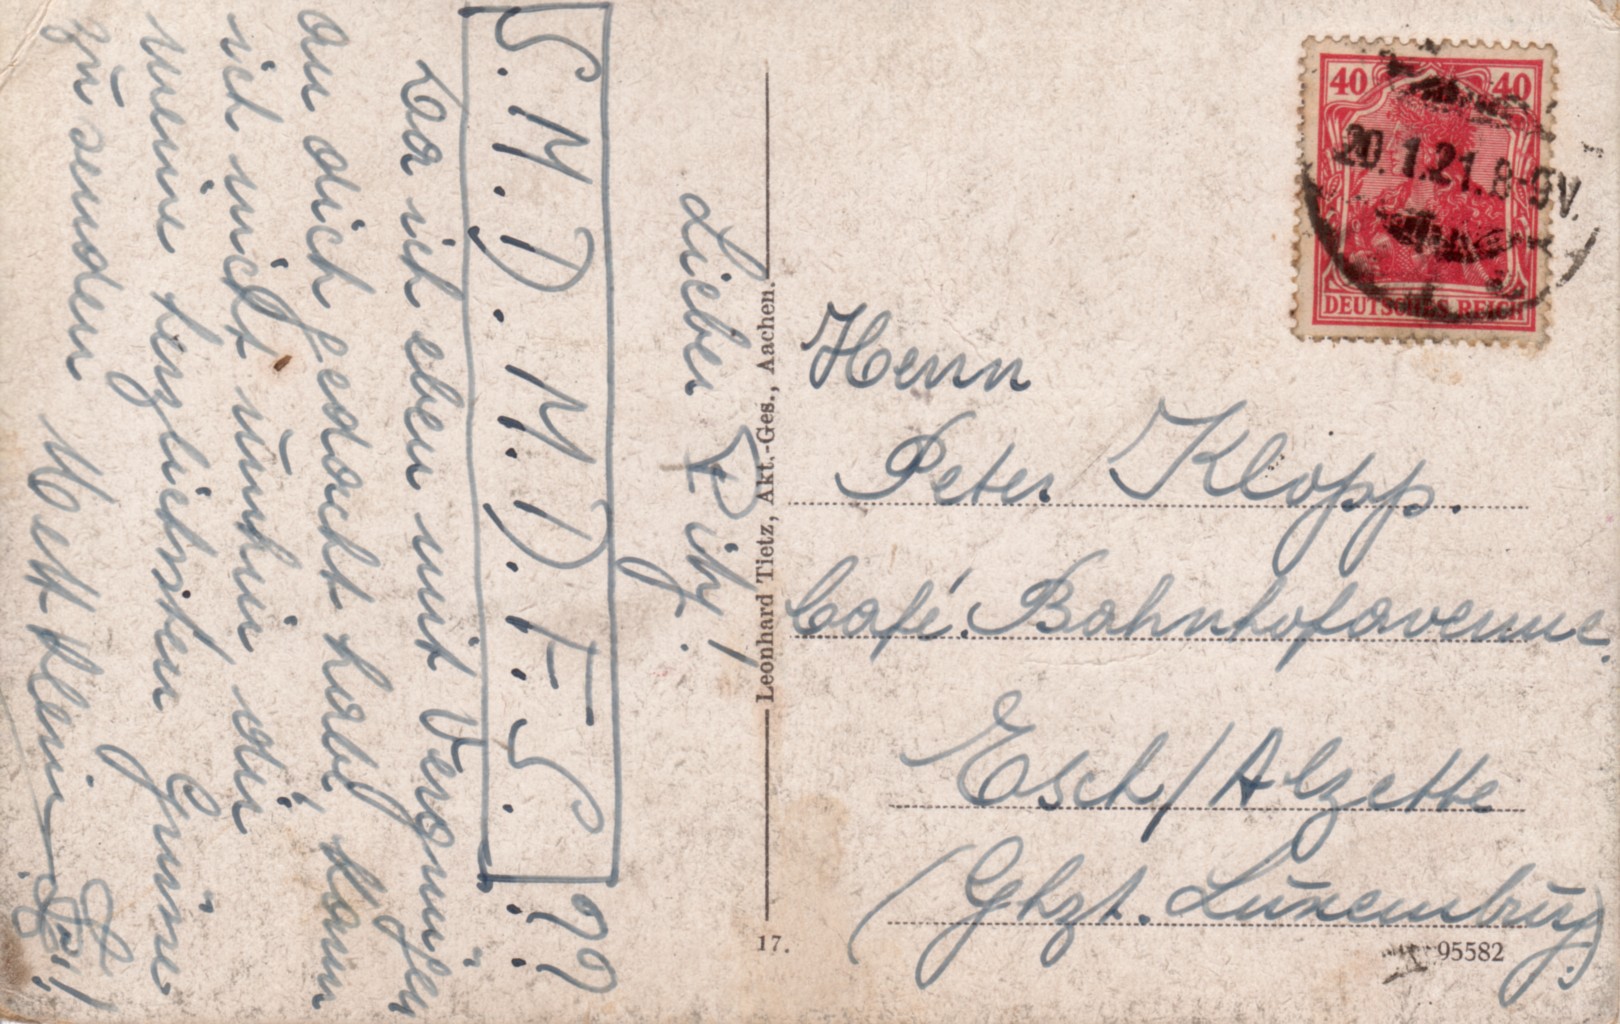 Lieber Pitz!
S.M.D.M.D.F.S.!??
Da ich eben mit Vergnügen
an dich gedacht habe, kann
ich nicht umhin dir
meine herzlichsten Grüsse
zu senden
Leonhard Tietz, Akt.-Ges., Aachen.
17.
40 40
20.1.21.8-9V.
DEUTSCHES REICH
Herrn
Peter Klopp.
Café. Bahnhofavenue.
Esch/Alzette
(Ghzt. Luxemburg.)
95582